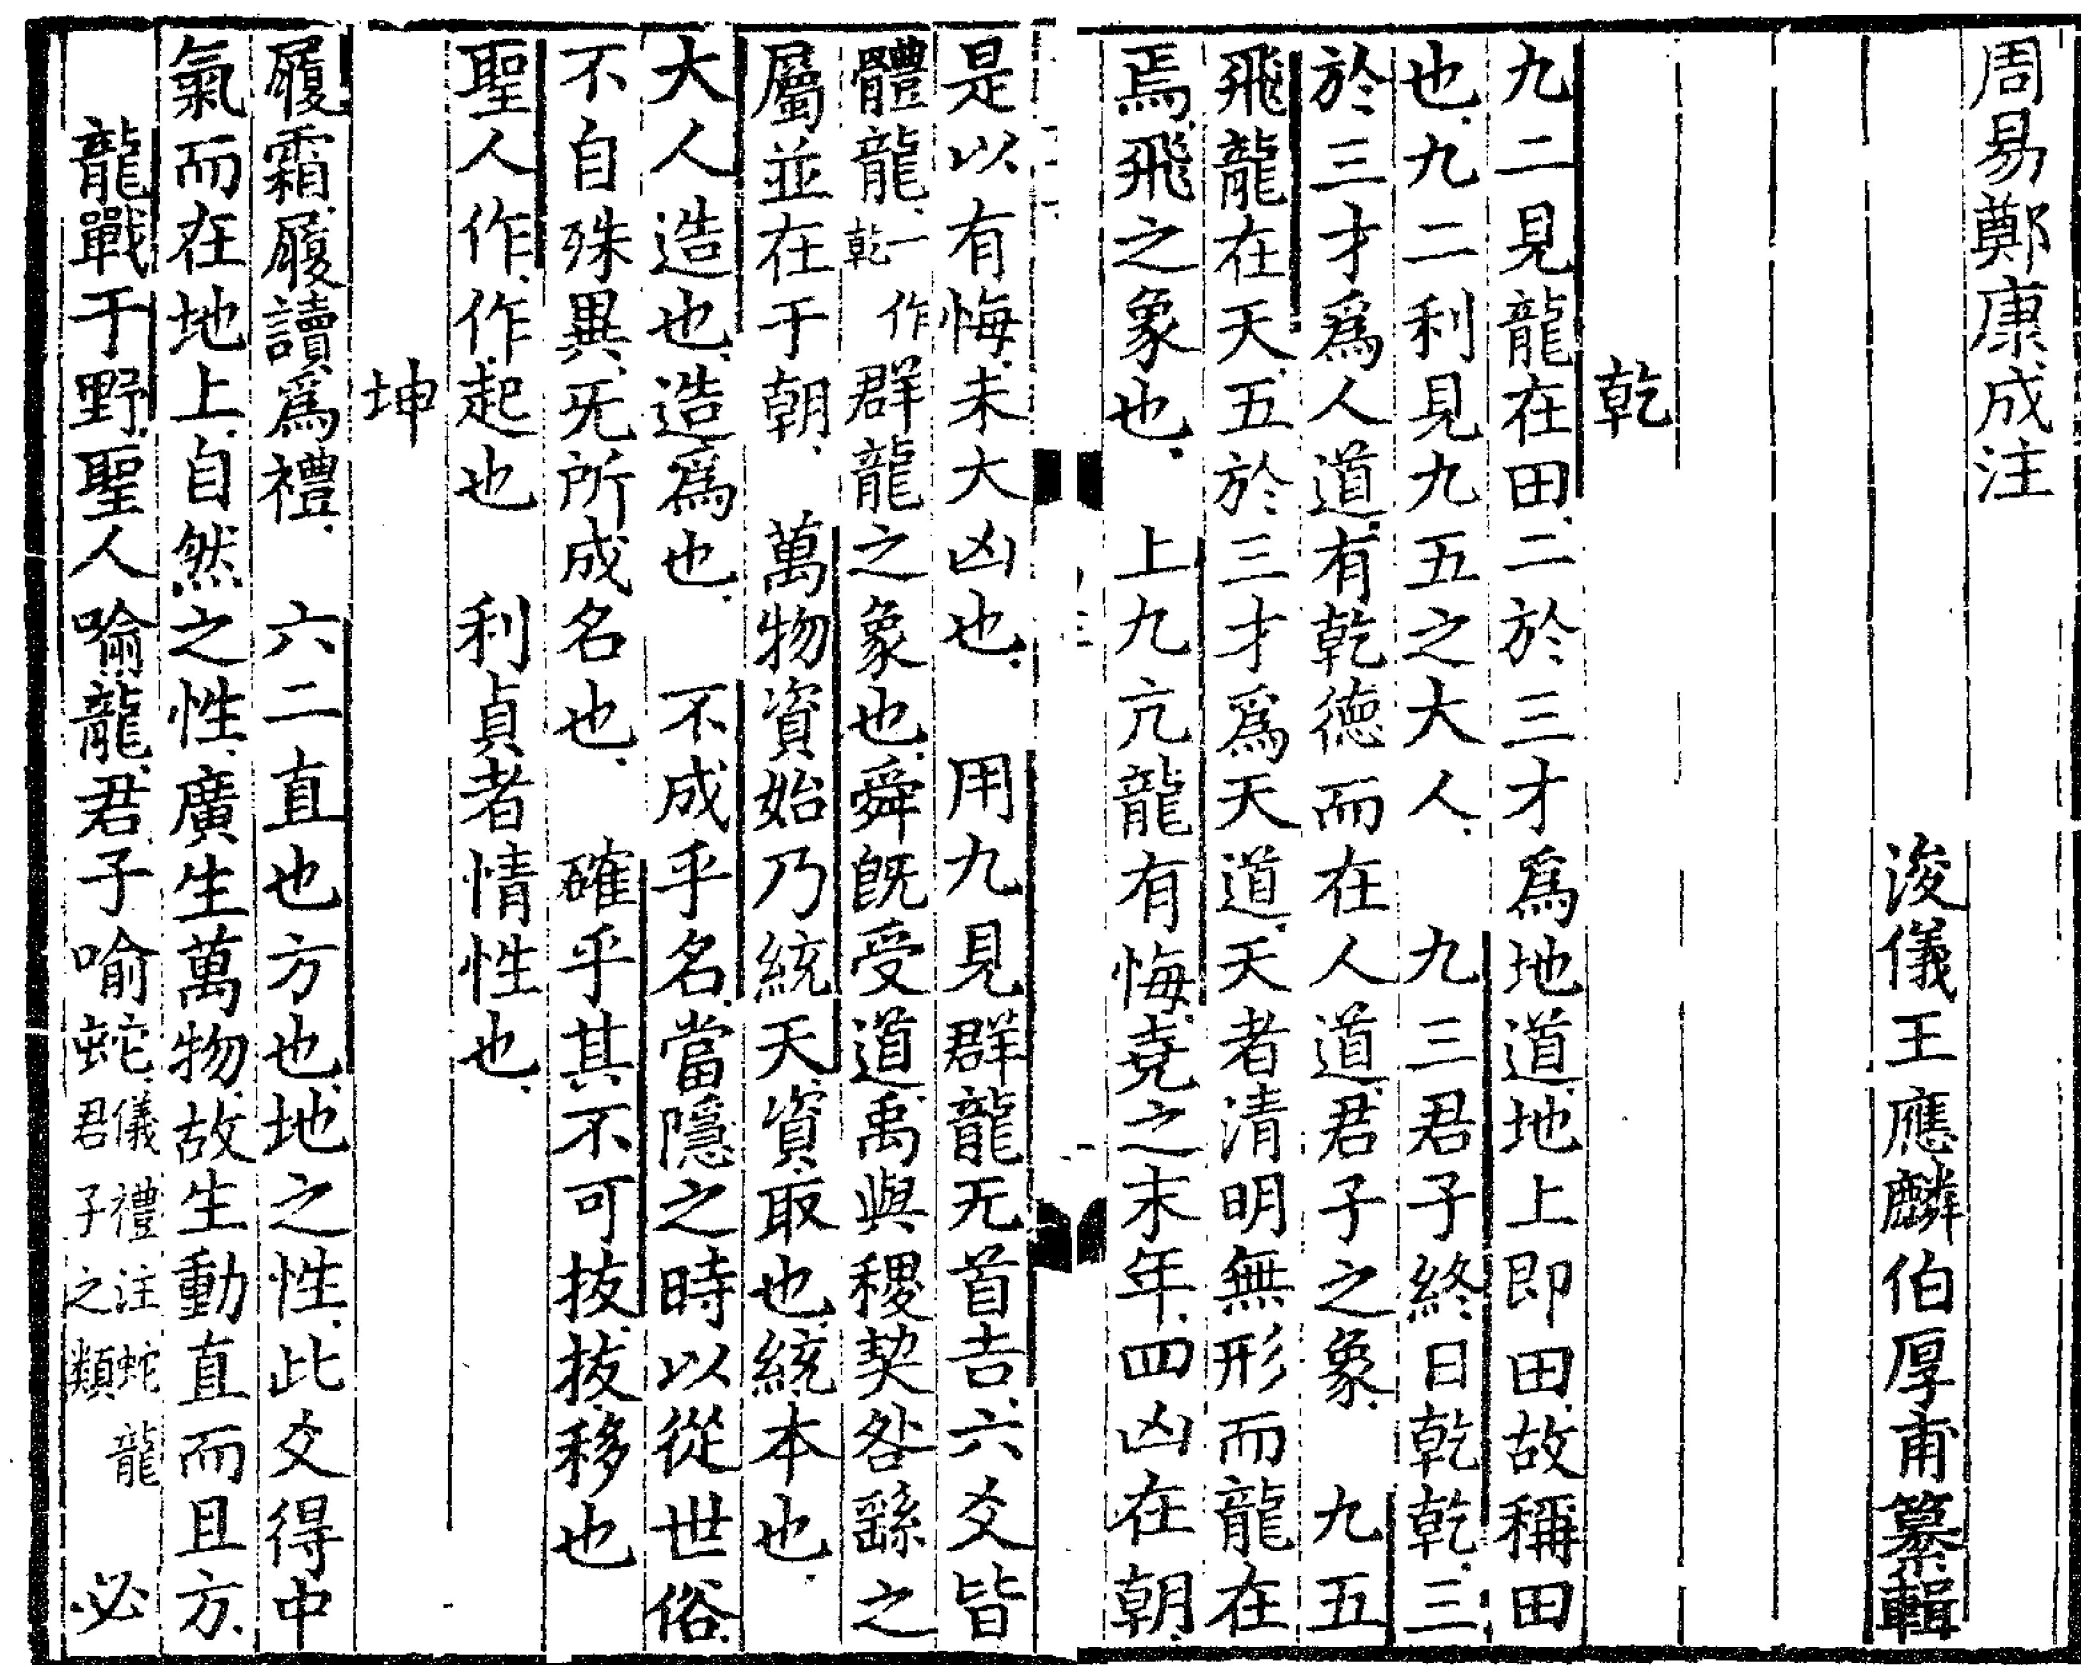 周易鄭康成注
浚儀王應麟伯厚甫纂輯
乾
九二見龍在田二於三才爲地道地上即田故稱田
也九二利見九五之大人　九三君子終日乾乾三
於三才爲人道有乾德而在人道君子之象　九五
飛龍在天五於三才爲天道天者清明無形而龍在
焉飛之象也　上九亢龍有悔堯之末年四凶在朝
是以有悔未大凶也　用九見群龍无首吉六爻皆
體龍一作乾群龍之象也舜旣受道禹與稷契咎繇之
屬並在于朝　萬物資始乃統天資取也統本也
大人造也造爲也　不成乎名當隱之時以從世俗
不自殊異无所成名也　確乎其不可拔拔移也
聖人作作起也　利貞者情性也
坤
履霜履讀爲禮　六二直也方也地之性此爻得中
氣而在地上自然之性廣生萬物故生動直而且方
龍戰于野聖人喻龍君子喻蛇儀禮注蛇龍君子之類　必